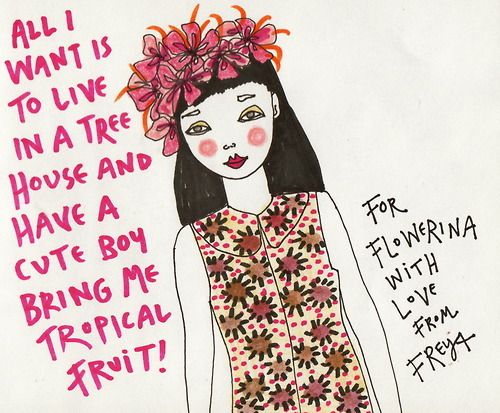 ALL I
WANT IS
TO LIVE
IN A TREE
HOUSE AND
HAVE A
CUTE BOY
BRING ME
TROPICAL
FRUIT!
FOR
FLOWERINA
WITH
LOVE
FROM
FREYA